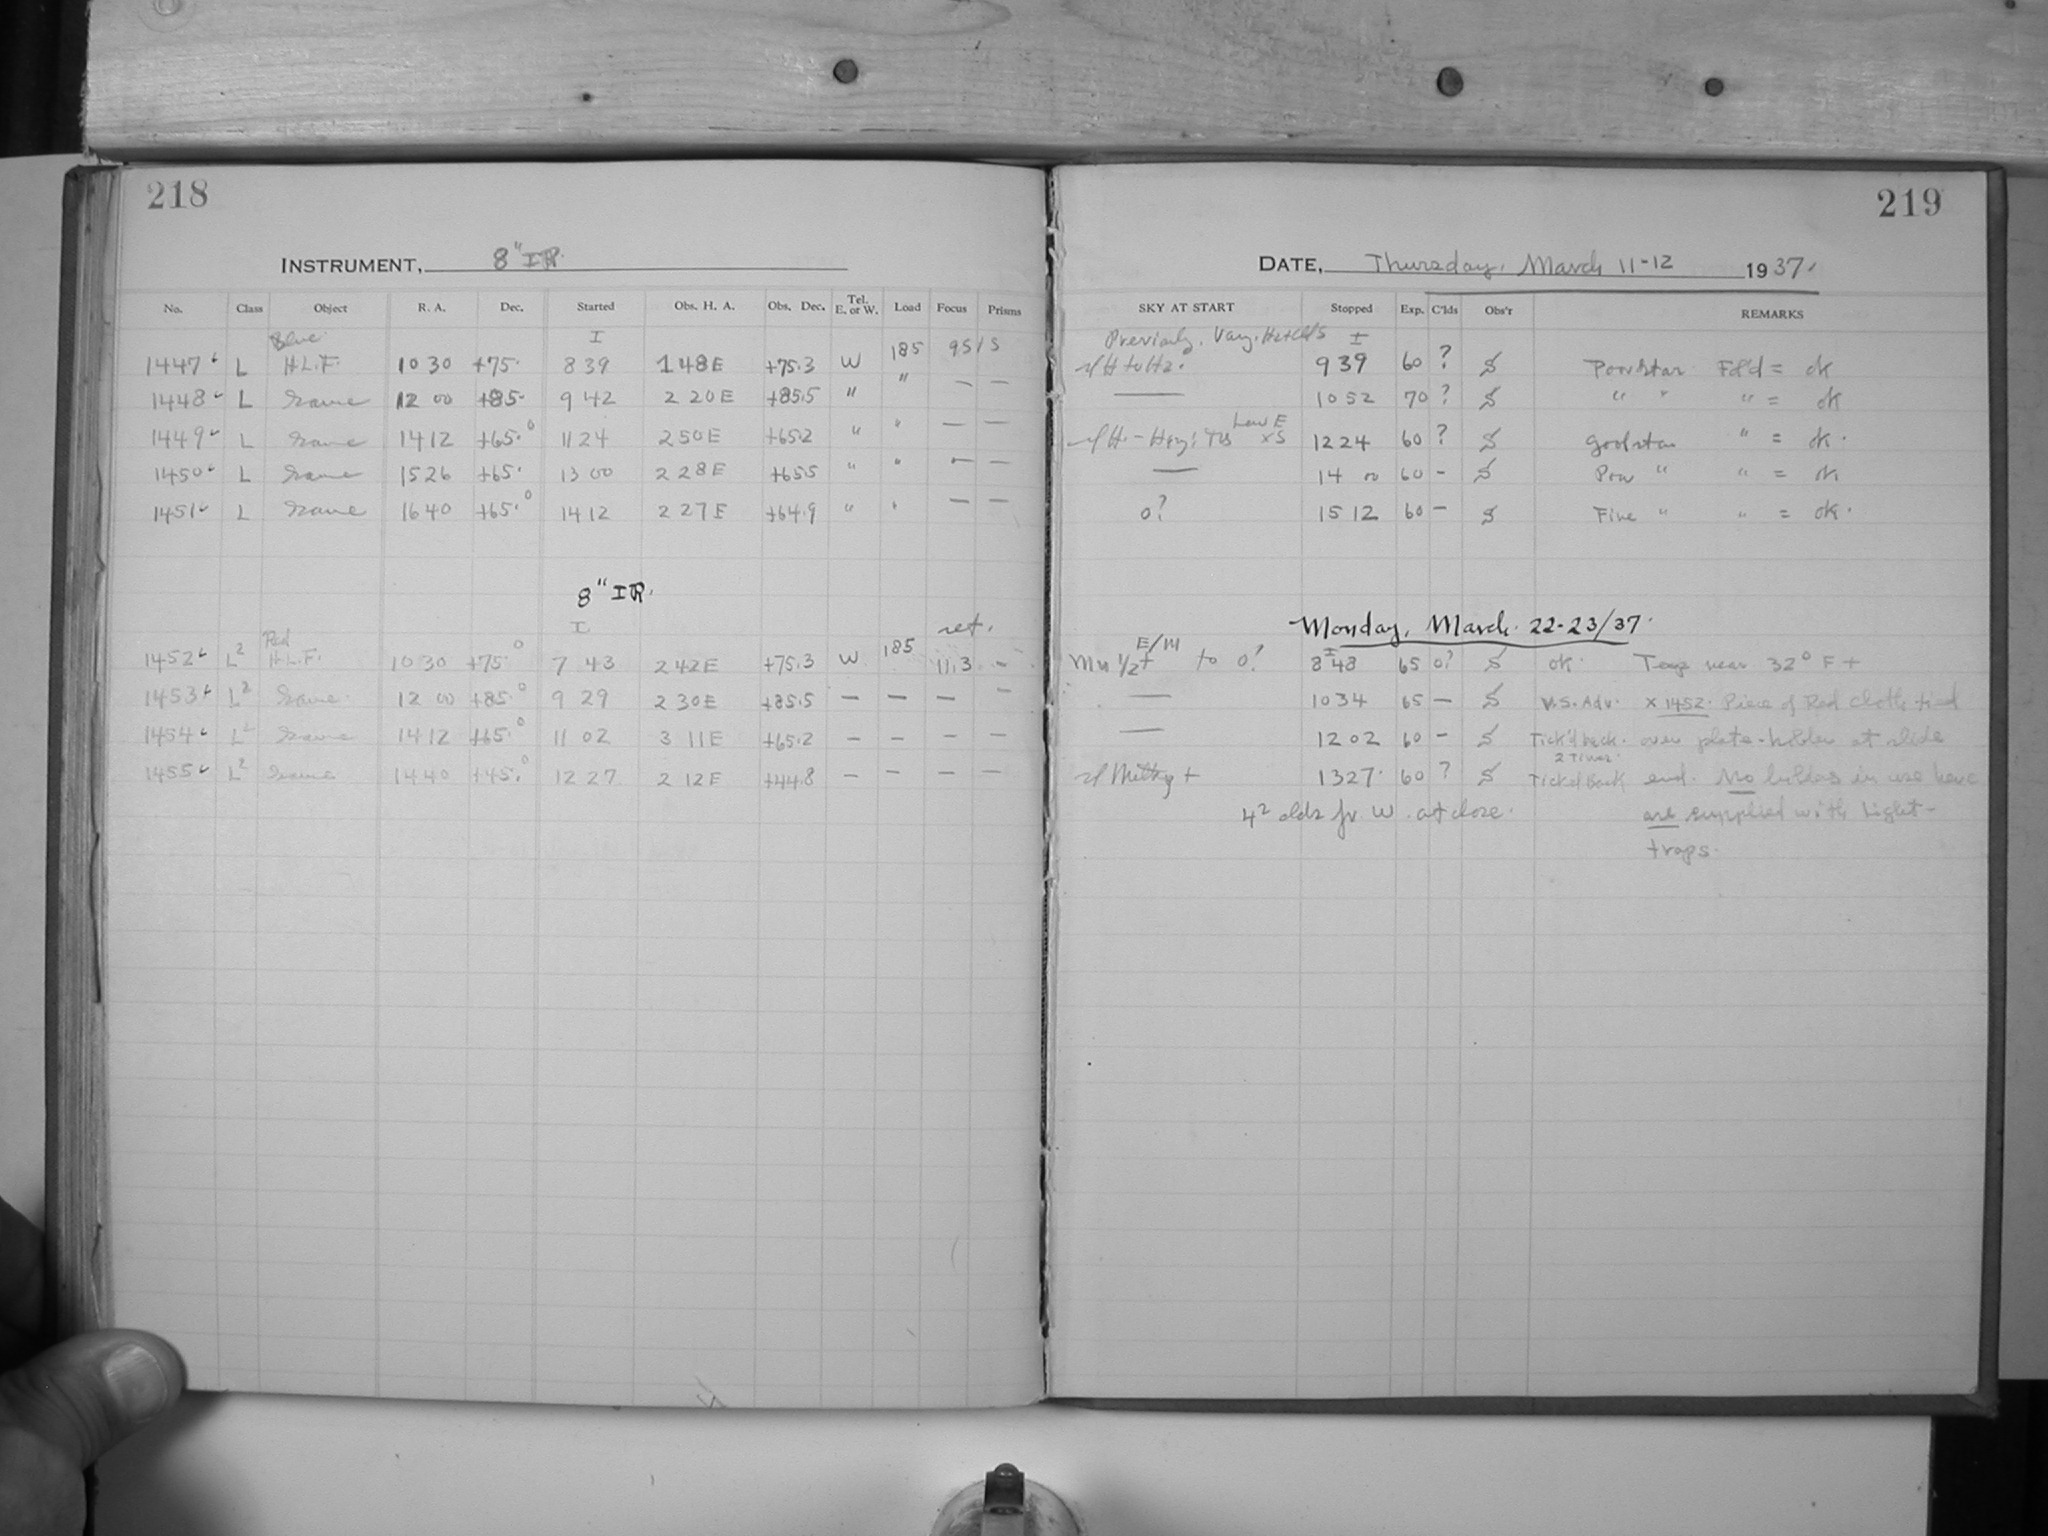 218
INSTRUMENT, 8" IR.
No. Class Object R. A. Dec. Started Obs. H. A. Obs. Dec. Tel. E. or W. Load Focus Prisms
Blue I
1447 L H.L.F. 10 30 +75. 8 39 1 48 E +75.3 W 185
1448 L Same 12 00 +85. 9 42 2 20 E +85.5 " " — —
1449 L Same 14 12 +65.° 11 24 2 50 E +65.2 " " — —
1450 L Same 15 26 +65. 13 00 2 28 E +65.5 " " — —
1451 L Same 16 40 +65.° 14 12 2 27 E +64.9 " " — —
8" IR.
I
Red ret.
1452 L² H.L.F. 10 30 +75.° 7 43 2 42 E +75.3 W 185 11.3 —
1453 L² Same. 12 00 +85.° 9 29 2 30 E +85.5 — — — —
1454 L² Same 14 12 +65.° 11 02 3 11 E +65.2 — — — —
1455 L² Same 14 40 +45.° 12 27 2 12 E +44.8 — — — —
219
DATE, Thursday, March 11-12 1937.
SKY AT START Stopped Exp. C'lds Obs'r REMARKS
Previously. ±
9 39 60 ? S Poor star F'd = ok
— 10 52 70 ? S " " " = ok
Low E
12 24 60 ? S Good star " = ok.
— 14 00 60 - S Poor " " = ok
0? 15 12 60 - S Fine " " = ok.
Monday, March. 22-23/37.
E/W ±
½+ to 0? 8 48 65 0? S ok. Temp near 32° F +
— 10 34 65 — S V.S. Adv. x 1452. Piece of Red cloth tied
— 12 02 60 - S Tick'd back. over plate-holder at slide
2 times.
13 27 60 ? S Ticked Back end. No holders in use here
4² clds fr. W. at close. are supplied with Light-
traps.